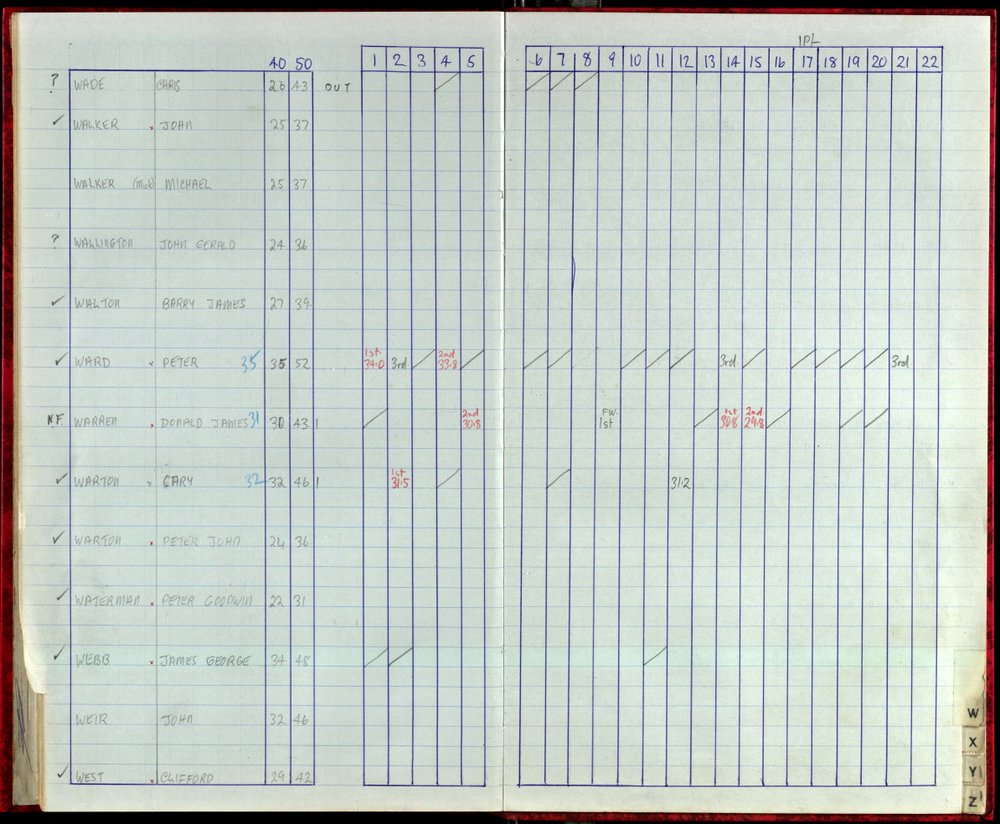 IPL
40 50 1 2 3 4 5 6 7 8 9 10 11 12 13 14 15 16 17 18 19 20 21 22
? WADE CHRIS 26 43 OUT
✓ WALKER . JOHN 25 37
WALKER (Mck) MICHAEL 25 37
? WALLINGTON JOHN GERALD 24 36
✓ WALTON BARRY JAMES 27 39
1st 2nd
✓ WARD PETER 35 35 52 34.0 3rd 33.8 3rd 3rd
2nd FW. 1st 2nd
NF WARREN . DONALD JAMES 31 30 43 1 30.8 1st 30.8 29.8
1st
✓ WARTON GARY 32 32 46 1 31.5 31.2
✓ WARTON PETER JOHN 24 36
✓ WATERMAN . PETER GOODWIN 22 31
✓ WEBB . JAMES GEORGE 34 48
WEIR JOHN 32 46
✓ WEST . CLIFFORD 29 42
W
X
Y
Z